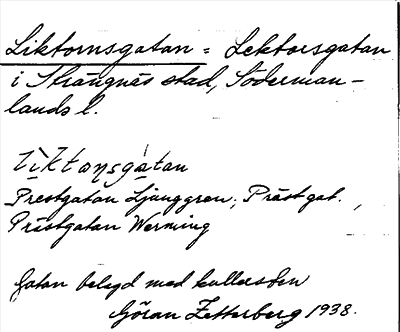 Liktornsgatan = Lektorsgatan
i Strängnäs stad, Söderman-
lands l.
Liktonsgatan
Prestgatan Ljunggren; Präst gat.
Prästgatan Werming
Gatan belagd med kullersten
Göran Zetterberg 1938.